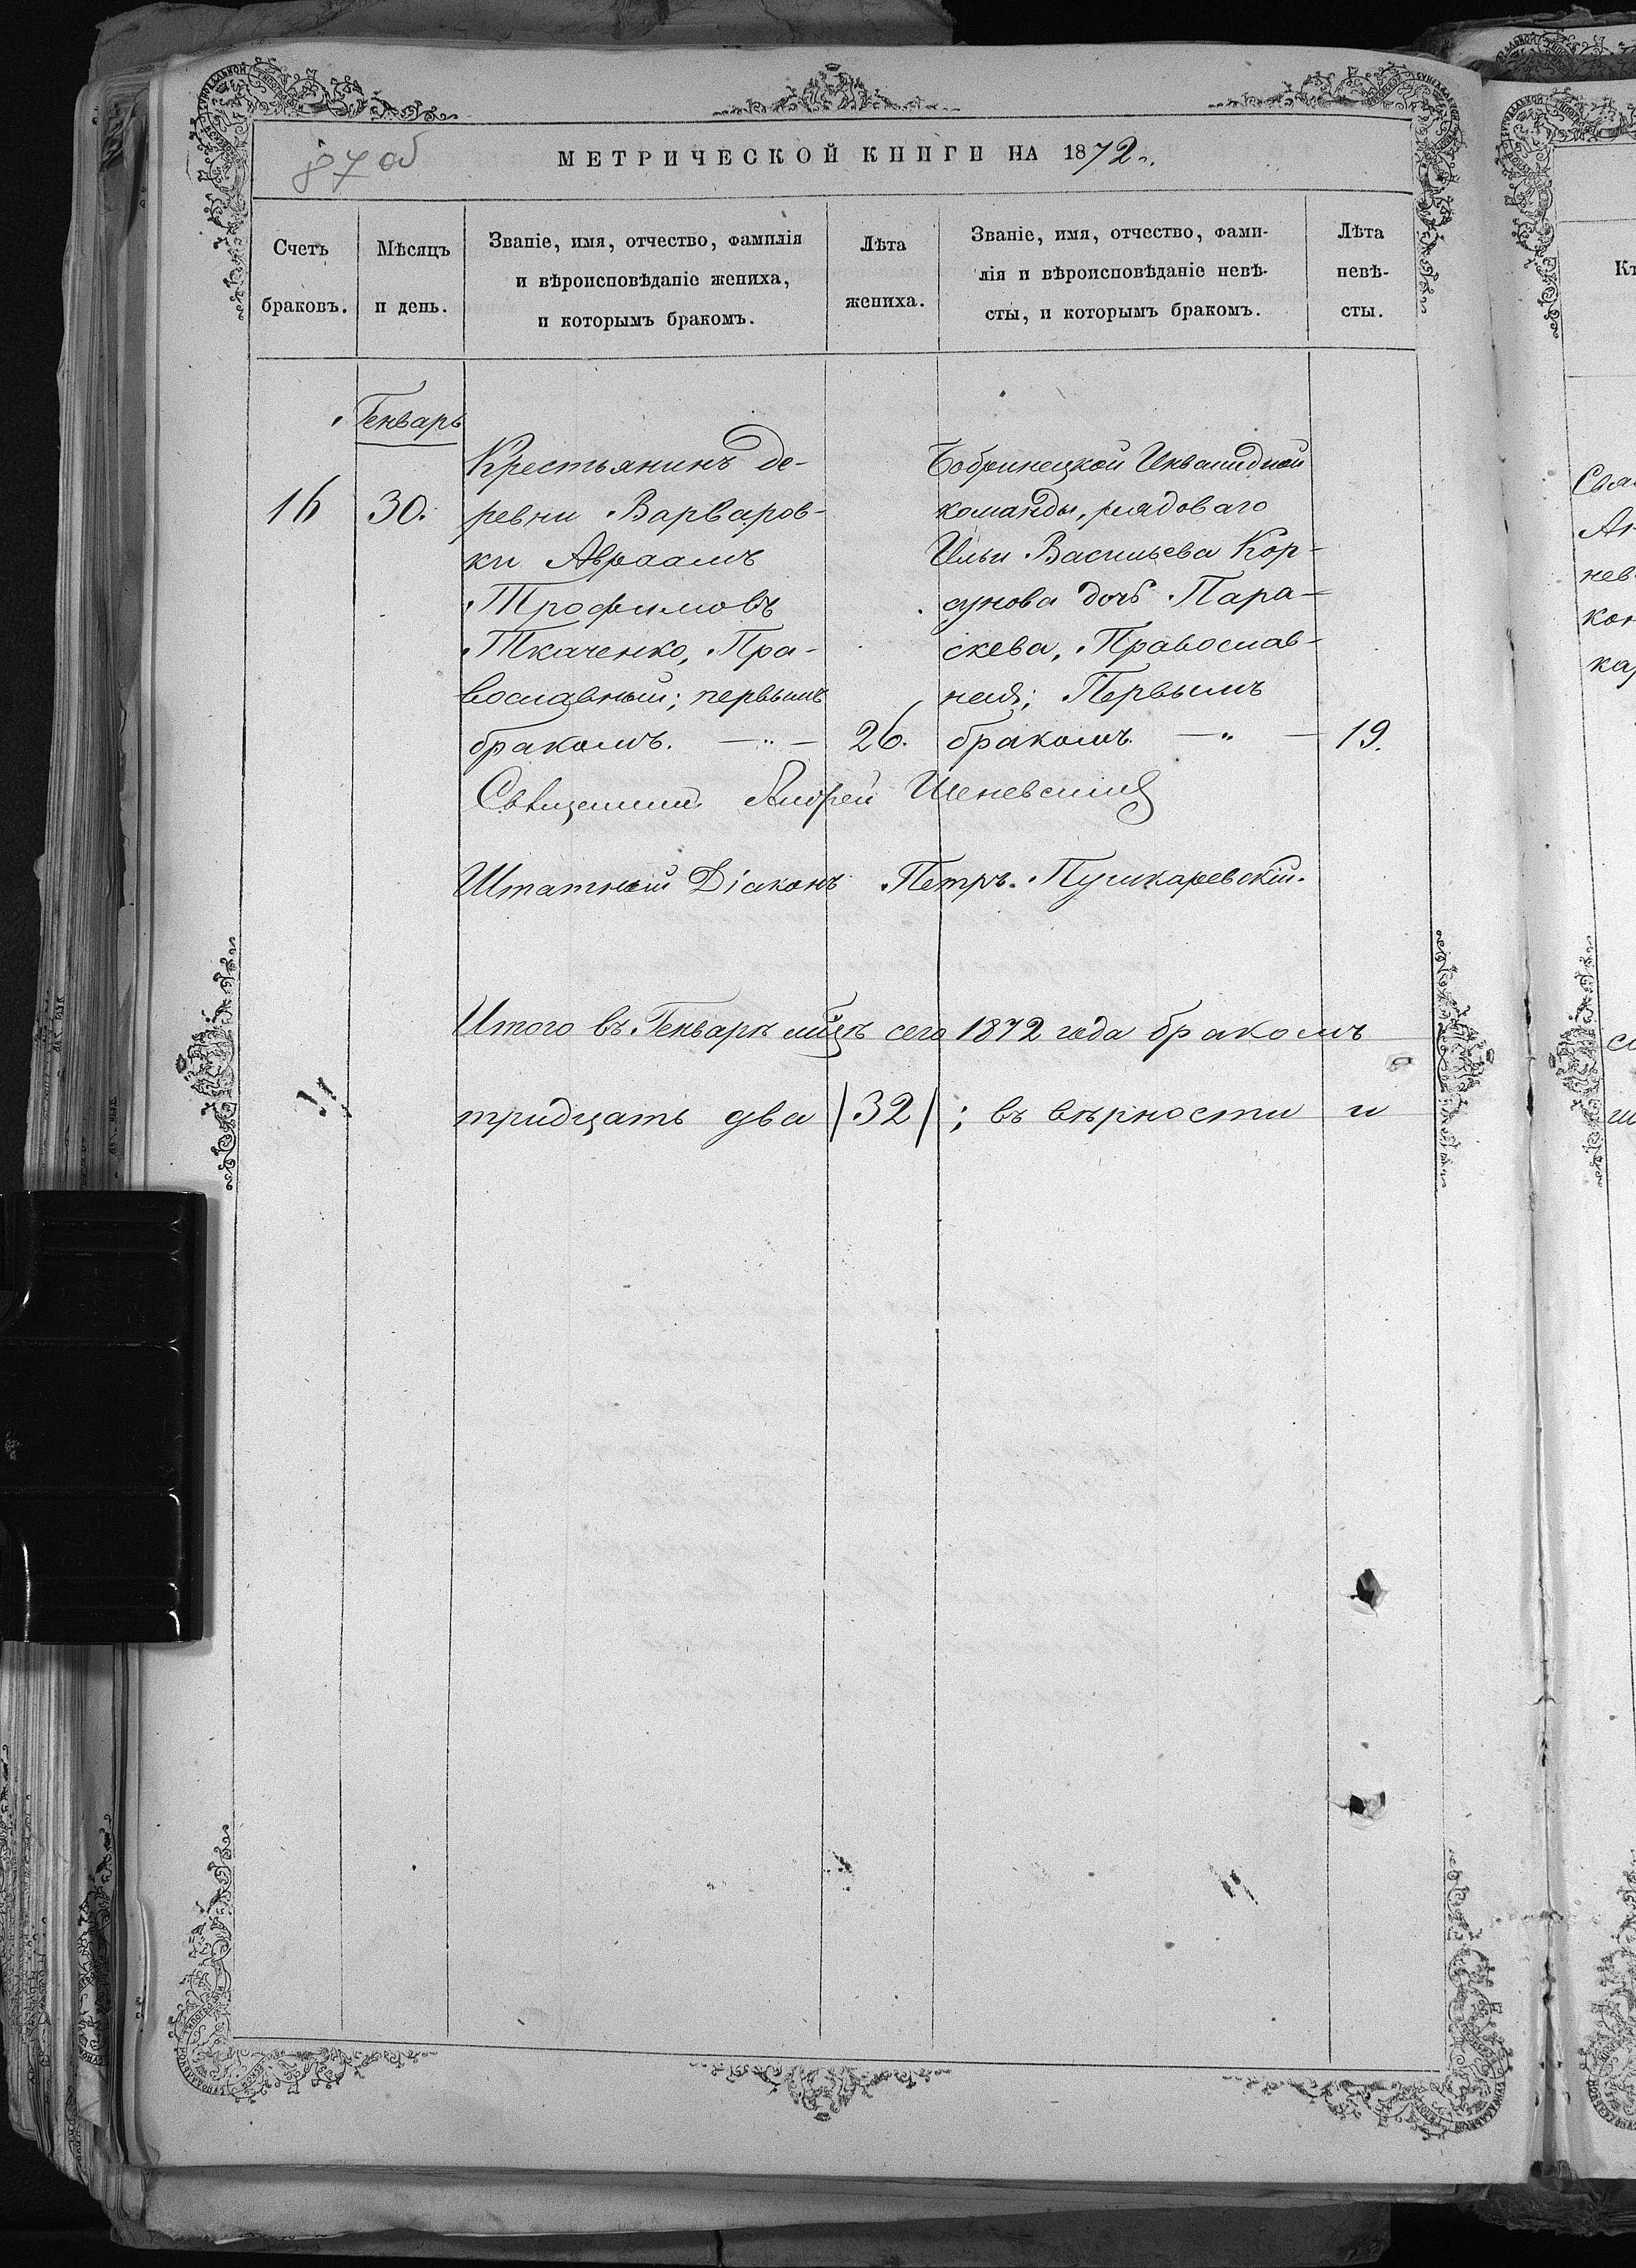 87 об
МЕТРИЧЕСКОЙ КНИГИ НА 1872 г.
Счетъ браковъ.
Мѣсяцъ и день.
Званіе, имя, отчество, фамилія
и вѣроисповѣданіе жениха,
и которымъ бракомъ.
Лѣта жениха.
Званіе, имя, отчество, фами-
лія и вѣроисповѣданіе невѣ-
сты, и которымъ бракомъ.
Лѣта невѣ-
сты.
Генварь
16
30.
Крестьянинъ де-
ревни Варваров-
ки Авраамъ
Трофимовъ
Ткаченко, Пра-
вославный; первымъ
бракомъ. — " —
26.
Бобринецкой Инвалидной
команды, рядоваго
Ильи Васильева Кор-
сунова дочь Пара-
скева, Православ-
ная; Первымъ
бракомъ. — " —
19.
Священникъ Андрей
Штатный Діаконъ Петръ Пушкаревскій.
Итого въ Генварѣ мцѣ сего 1872 года бракомъ
тридцать два (32); въ вѣрности и